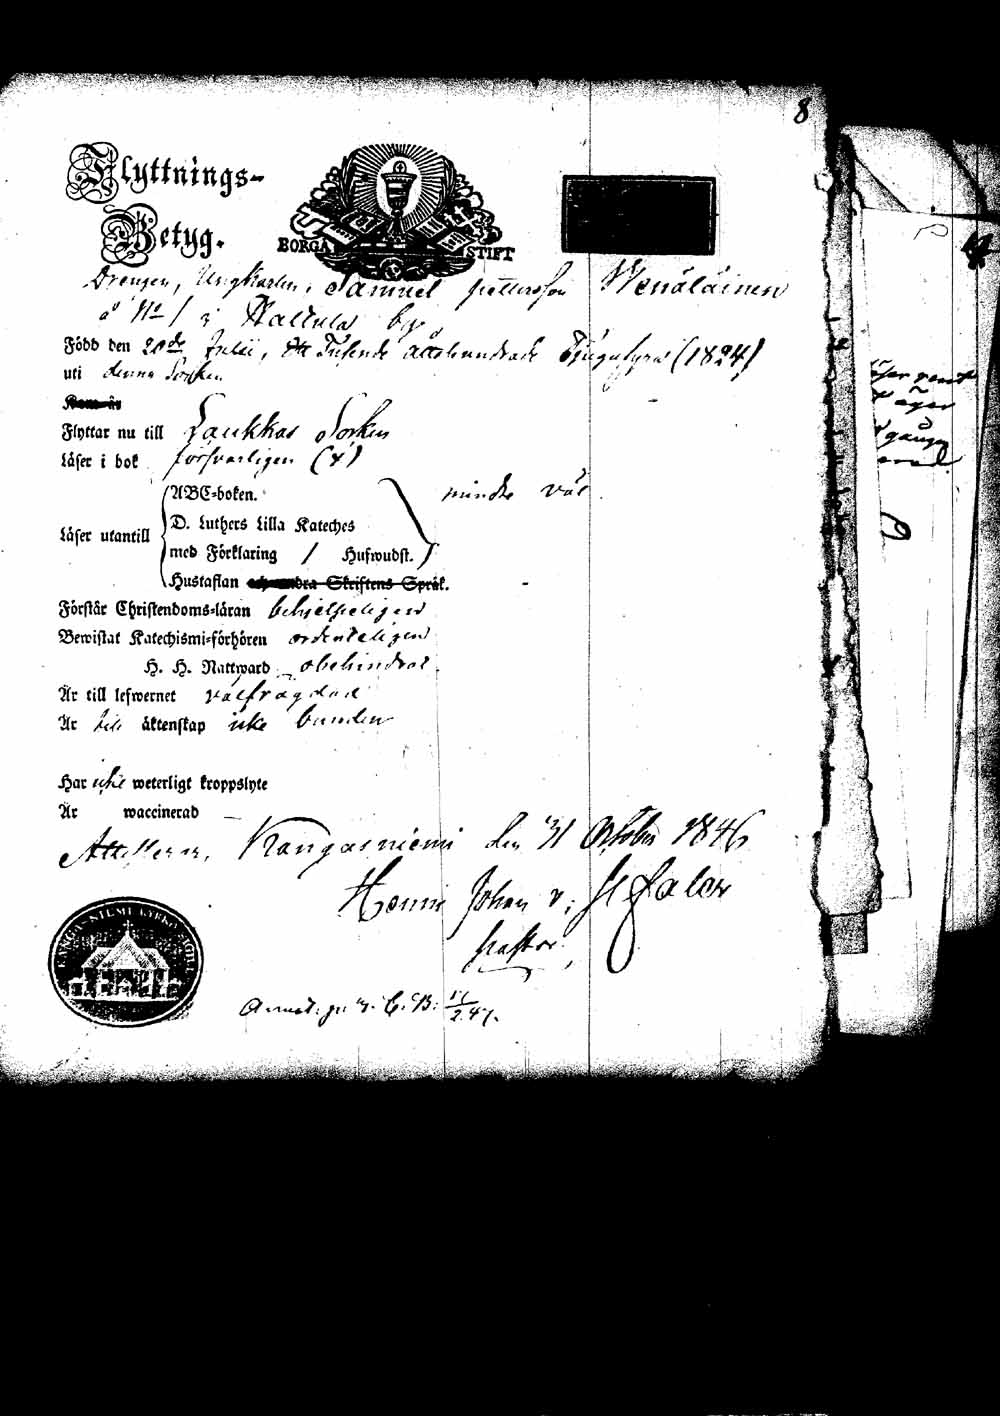 8
Flyttnings-
Betyg.
BORGÅ STIFT
Drengen, Ungkarlen, Samuel Pettersson Wenäläinen
å No 1 i Hallula by
Född den 20de Julii, Ett Tusende Åttahundrade Tjugufyra (1824)
uti denna Socken
Flyttar nu till Laukkas Socken
Läser i bok försvarligen (x)
ABC-boken.
Läser utantill
D. Luthers Lilla Kateches
mindre väl
med Förklaring / Hufwudst.
Hustaflan och andra Skriftens Språk.
Förstår Christendoms-läran behjelpeligen
Bewistat Katechismi-förhören ordenteligen
H. H. Nattward obehindrad
Är till lefwernet välfrägdad
Är till äktenskap icke bunden
Har icke weterligt kroppslyte
Är waccinerad —
Attesterar, Kangasniemi den 31 October 1846
Henric Johan
Pastor.
KANGASNIEMI KYRKO SIGILL